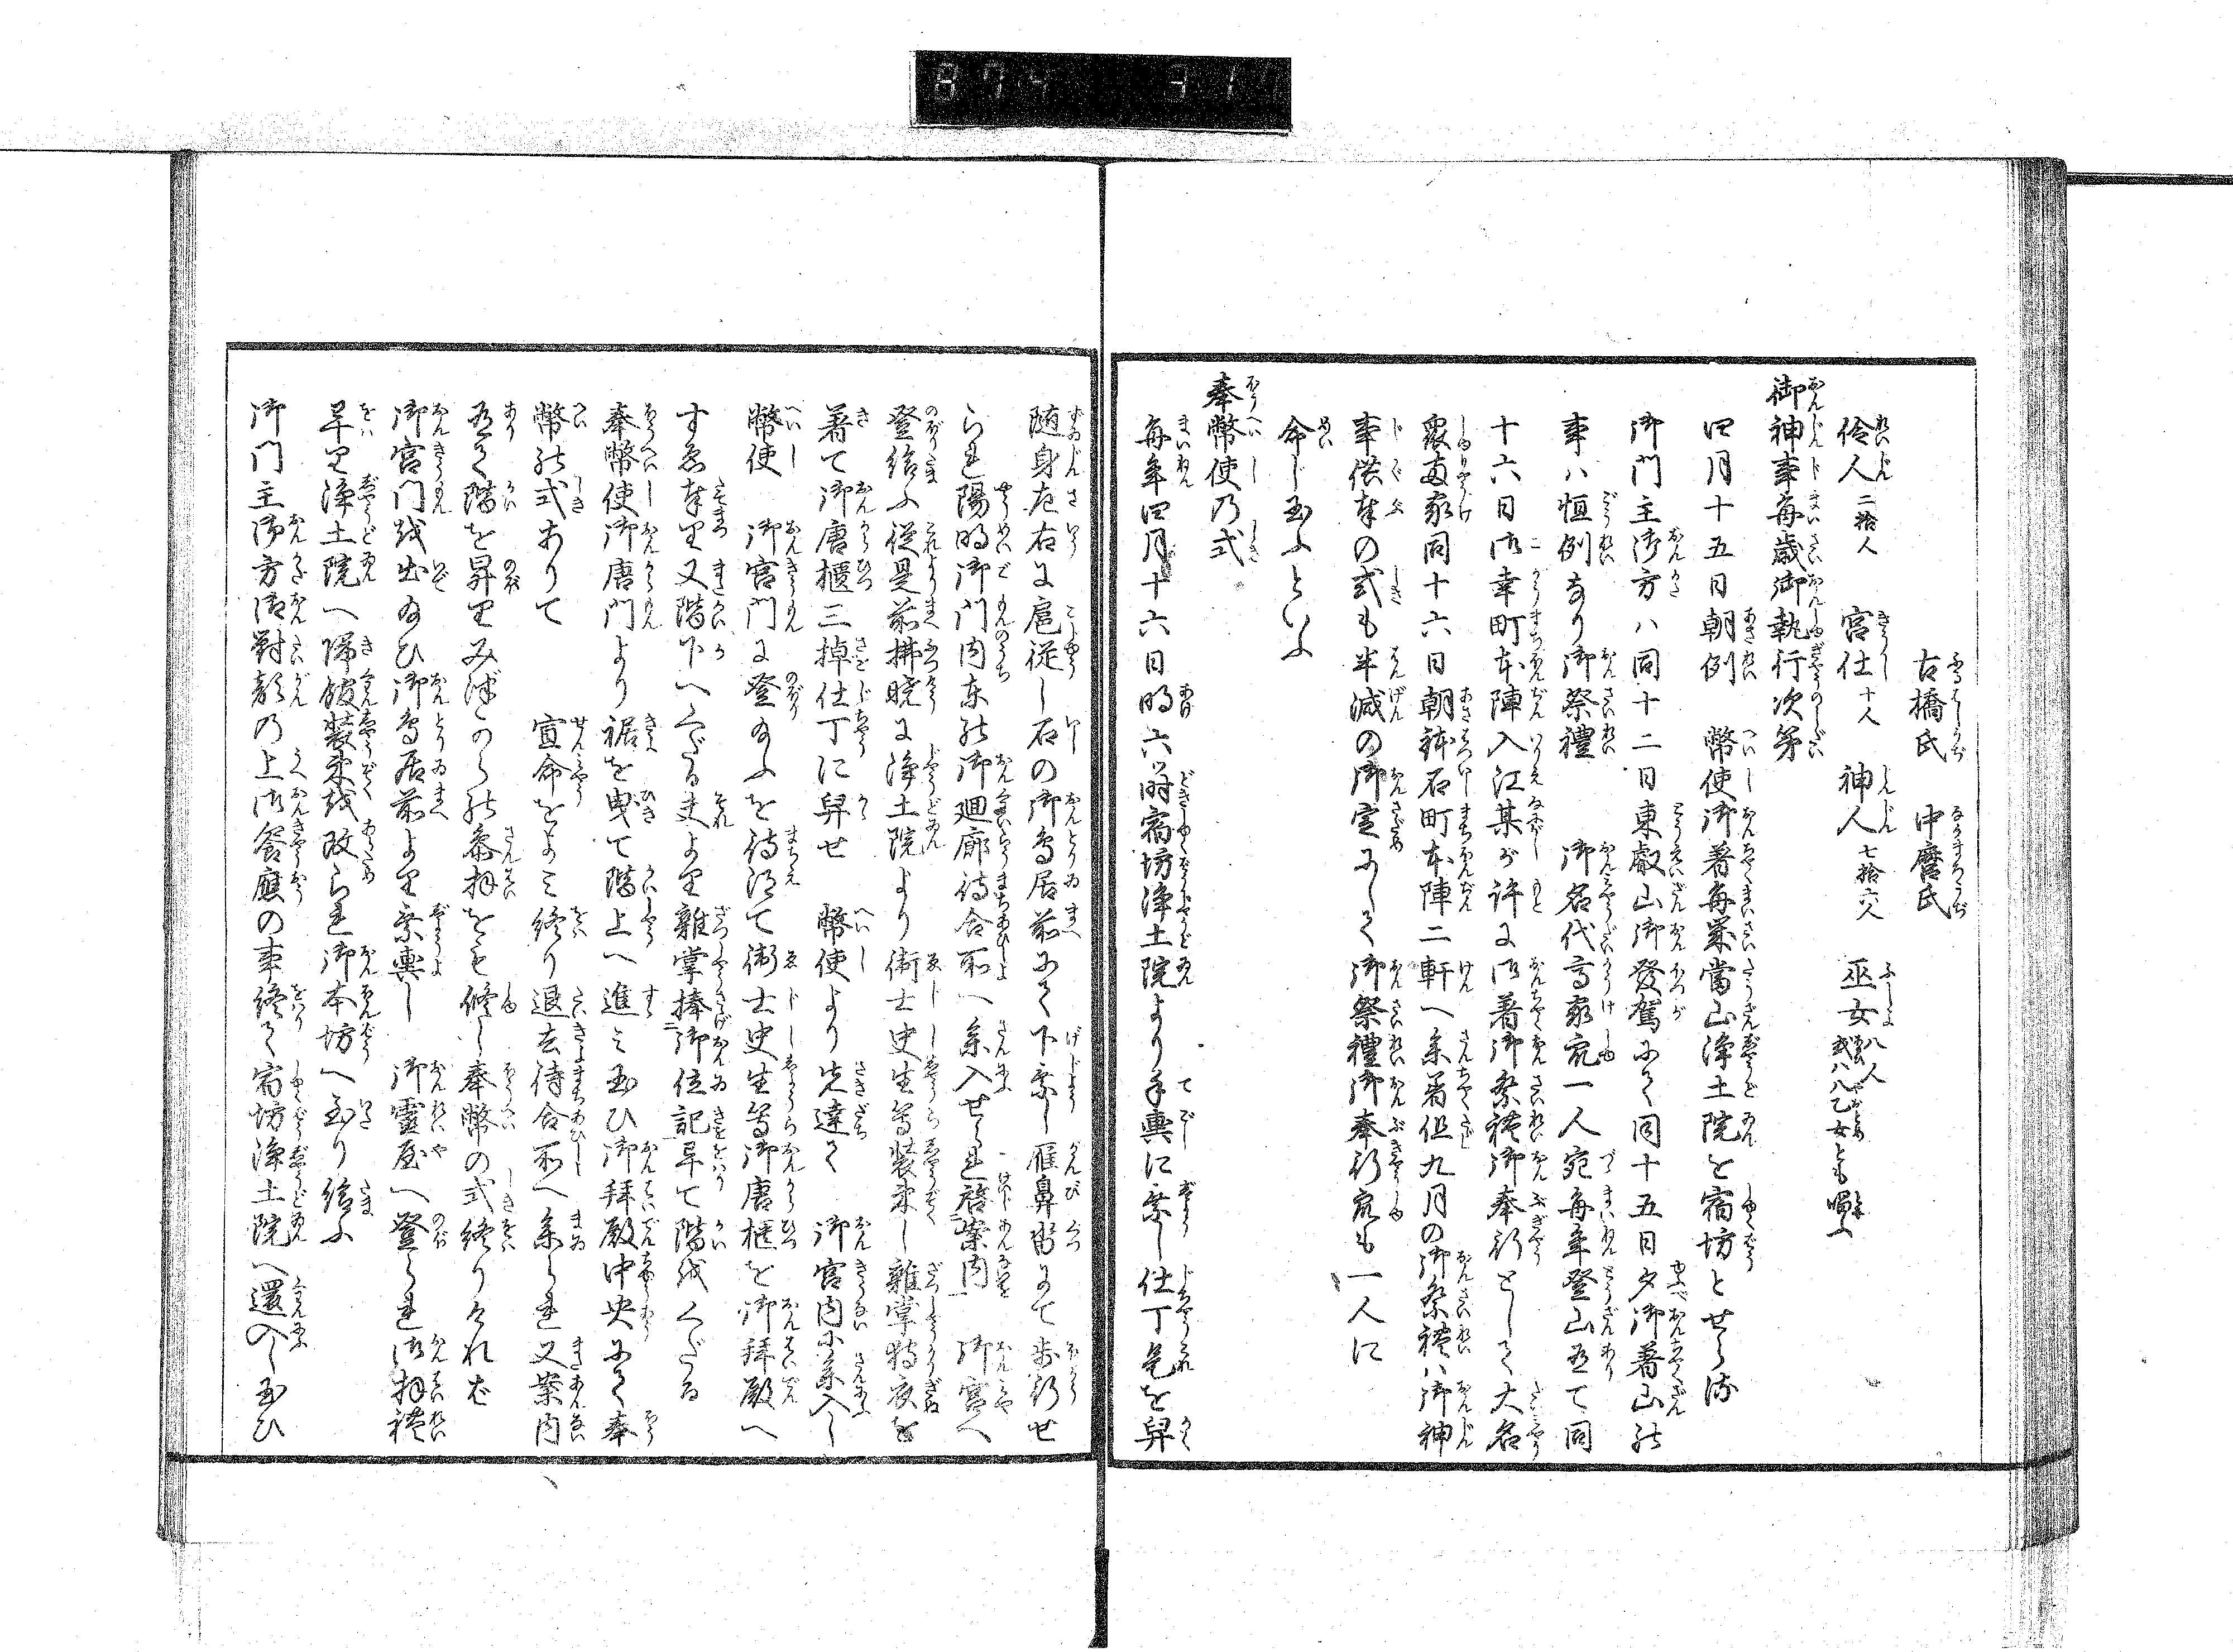 古橋氏　中麿氏
伶人二拾人　宮仕十人　神人七拾六人　巫女八人或ハ八乙女とも唱ふ
御神事毎歳御執行次第
四月十五日朝例　幣使御著毎歳當山浄土院を宿坊とせらる
御門主御方ハ同十二日東叡山御發駕にて同十五日夕御著山の
事ハ恒例なり御祭禮　御名代高家衆一人宛毎年登山有て同
十六日御幸町本陣入江某が許に御著御祭禮御奉行として大名
衆両家同十六日朝鉢石町本陣二軒へ参著但九月の御祭禮ハ御神
事供奉の式も半減の御定にして御祭禮御奉行衆も一人に
命じ玉ふといふ
奉幣使乃式
毎年四月十六日明六時宿坊浄土院より手輿に乗し仕丁是を舁
随身左右に扈従し石の御鳥居前にて下乗し雁鼻沓にて歩行せ
られ陽明御門内東の御廻廊待合所へ参入せられ啓案内　御宮へ
登給ふ従是前拂暁に浄土院より衛士史生等装束し雜掌狩衣を
著て御唐櫃三掉仕丁に舁せ　幣使より先達て　御宮内に参入し
幣使　御宮門に登給ふを待得て衛士史生等御唐櫃を御拜殿へ
すゑ奉り又階下へくだる夫より雜掌捧御位記畢て階をくだる
奉幣使御唐門より裾を曳て階上へ進み玉ひ御拜殿中央にて奉
幣の式ありて　宣命をよみ終り退去待合所へ参られ又案内
有て階を昇りみづからの参拜をも脩し奉幣の式終りけれバ
御宮門を出給ひ御鳥居前より乗輿し　御靈屋へ登られ御拜禮
畢り浄土院へ帰館装束を改られ御本坊へ至り給ふ
御門主御方御對顔の上御饗應の事終て宿坊浄土院へ還入し玉ひ